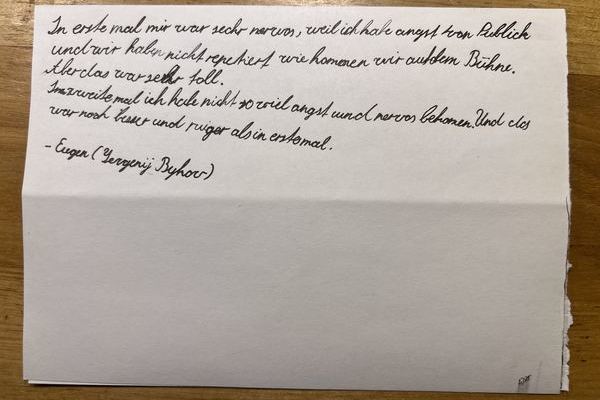 In erste mal mir war sechr nervos, weil ich habe angst von Publick
und wir haben nicht repetiert wie komenen wir auf dem Bühne.
Aber das war sehr toll.
Im zweite mal ich habe nicht so viel angst und nervos bekomen. Und das
war noch besser und ruger als in erste mal.
- Eugen (Yevgenij Bykov)